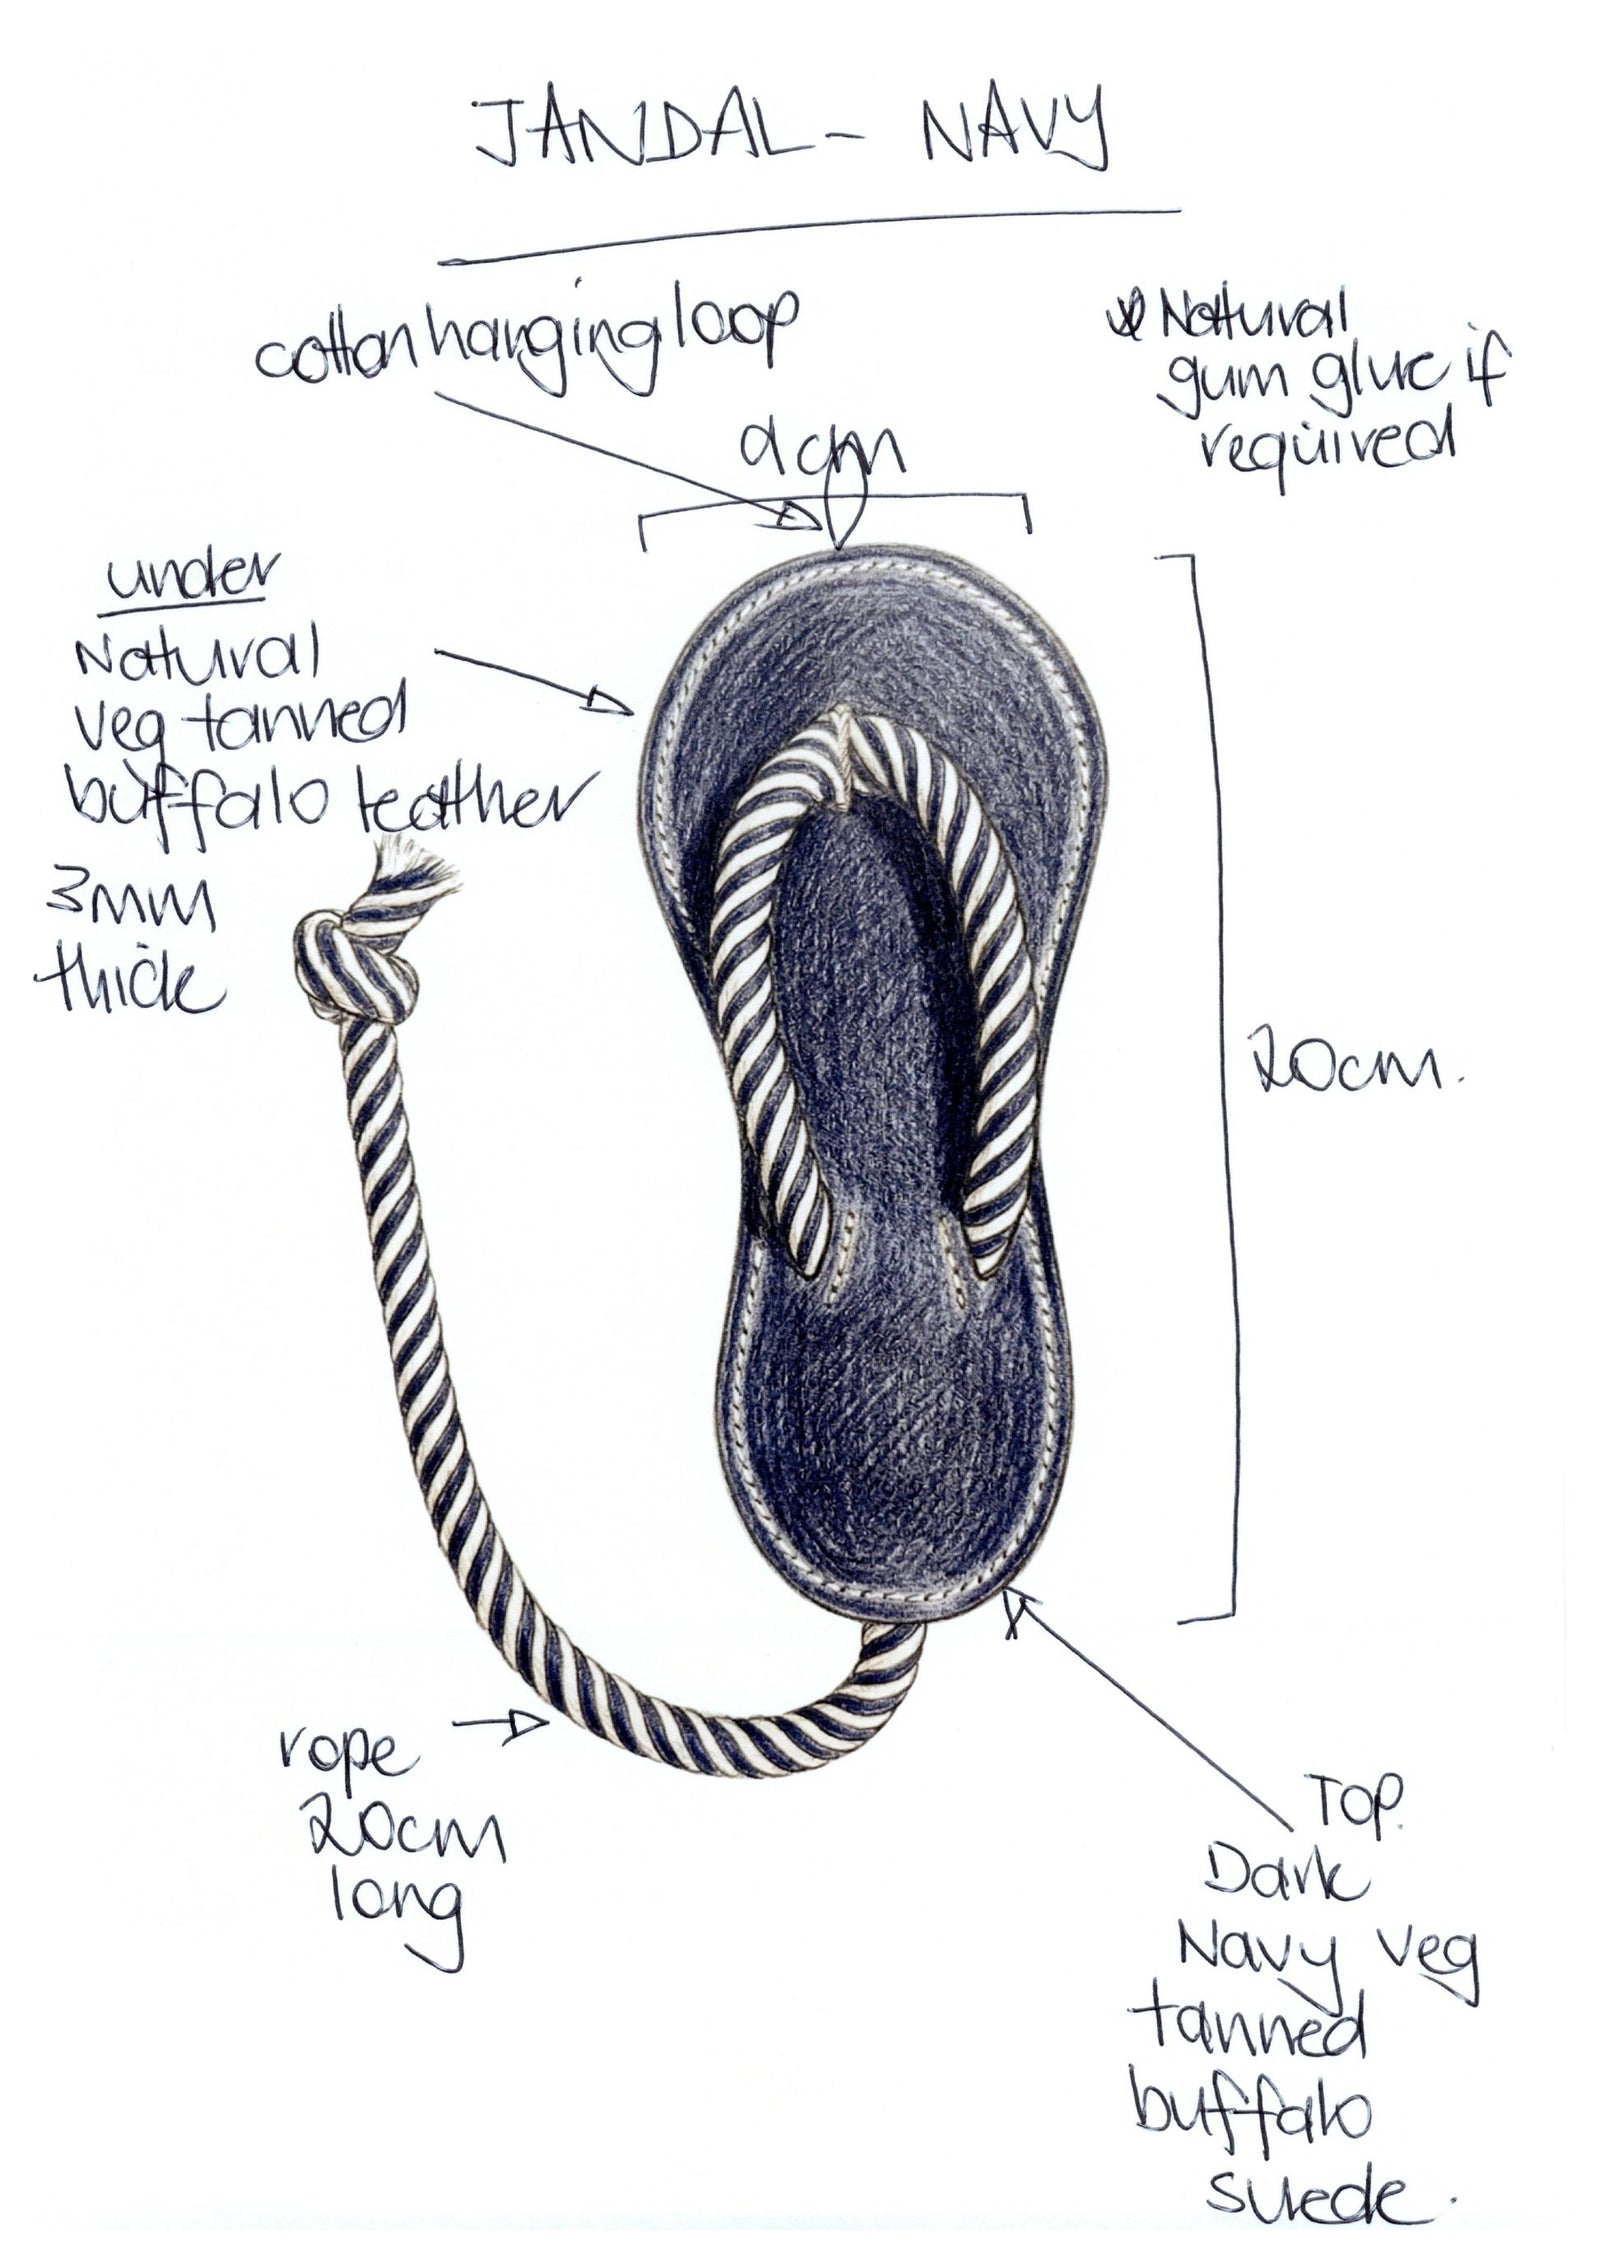 JANDAL - NAVY
cotton hanging loop
* Natural
gum glue if
required
cm
under
Natural
veg tanned
buffalo leather
3mm
thick
20cm.
rope
20cm
long
TOP.
Dark
Navy veg
tanned
buffalo
suede.